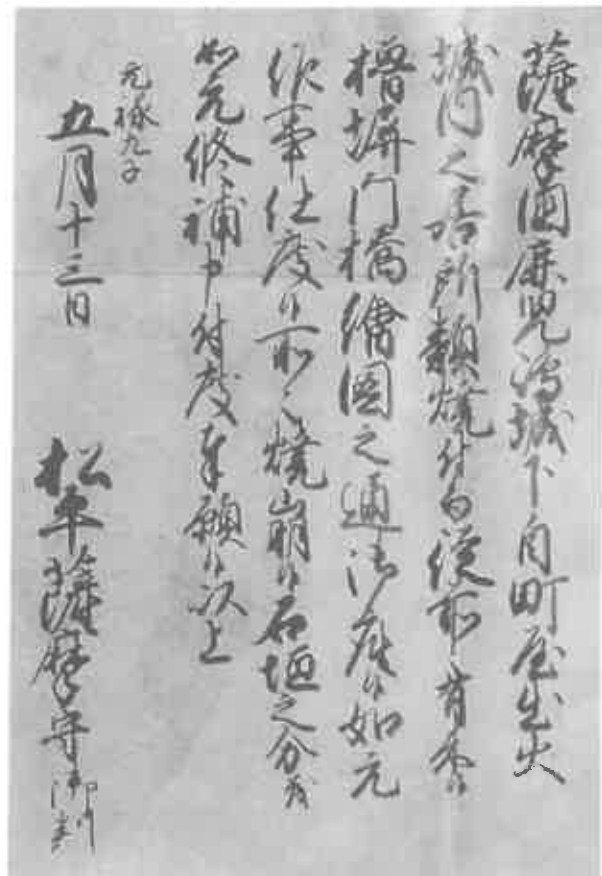 薩摩國鹿児嶋城下自町屋出火
城内之居所類焼付而従前々有来候
櫓塀門橋繪圖之通御座候如元
作事仕度候所々焼崩候石垣之分茂
如元修補申付度奉願候以上
元禄九子
五月十三日
松平薩摩守御判